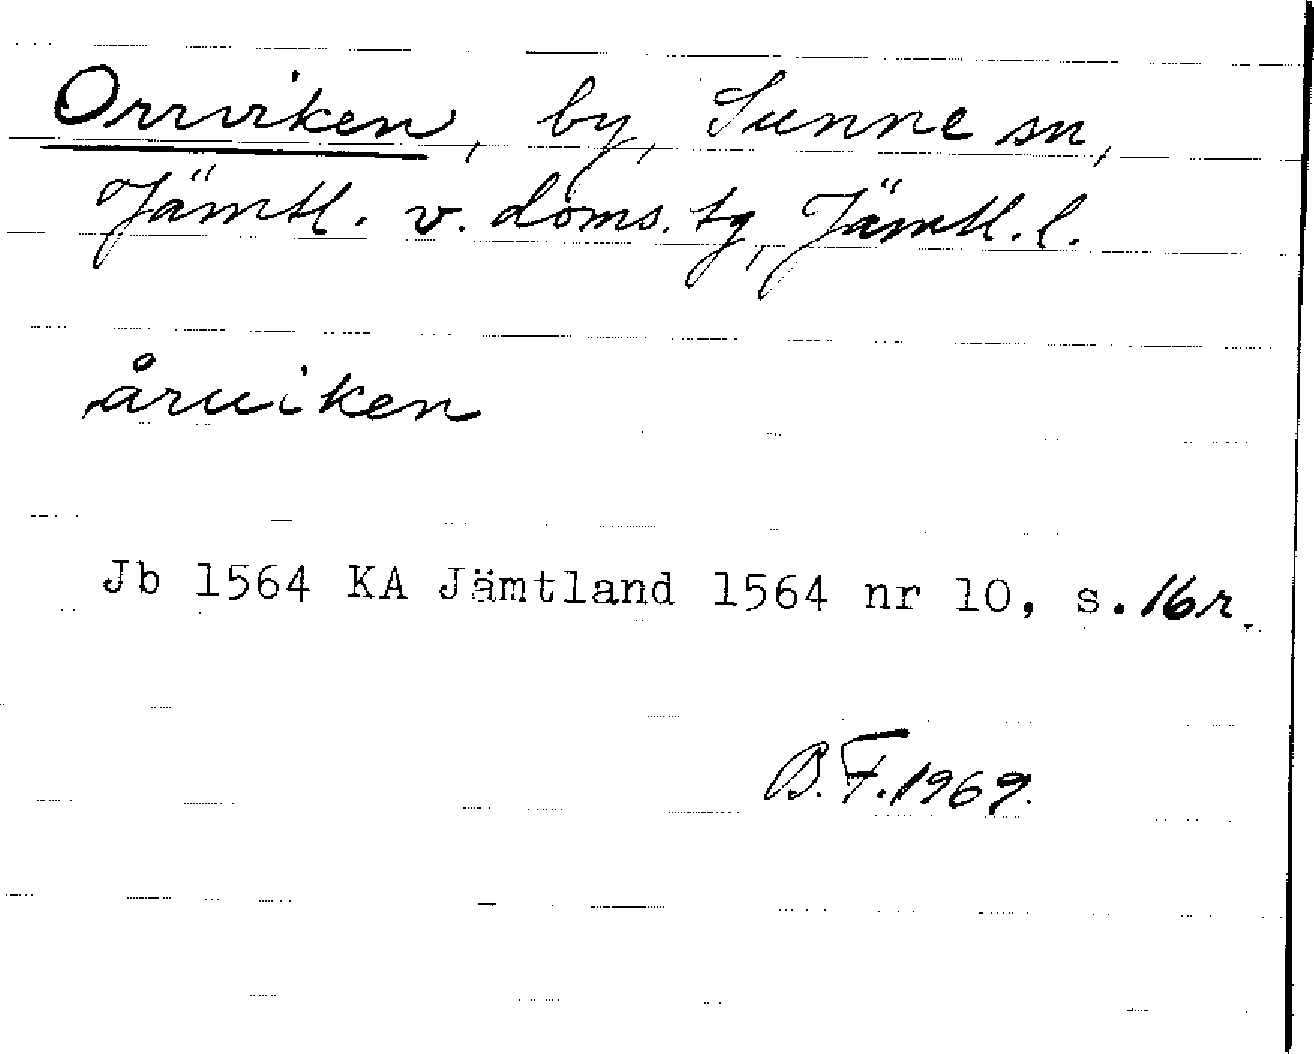 Orrviken, by, Sunne sn,
Jämtl. v. doms. tg, Jämtl. l.
åruiken
Jb 1564 KA Jämtland 1564 nr 10, s. 16r.
B.F. 1969.